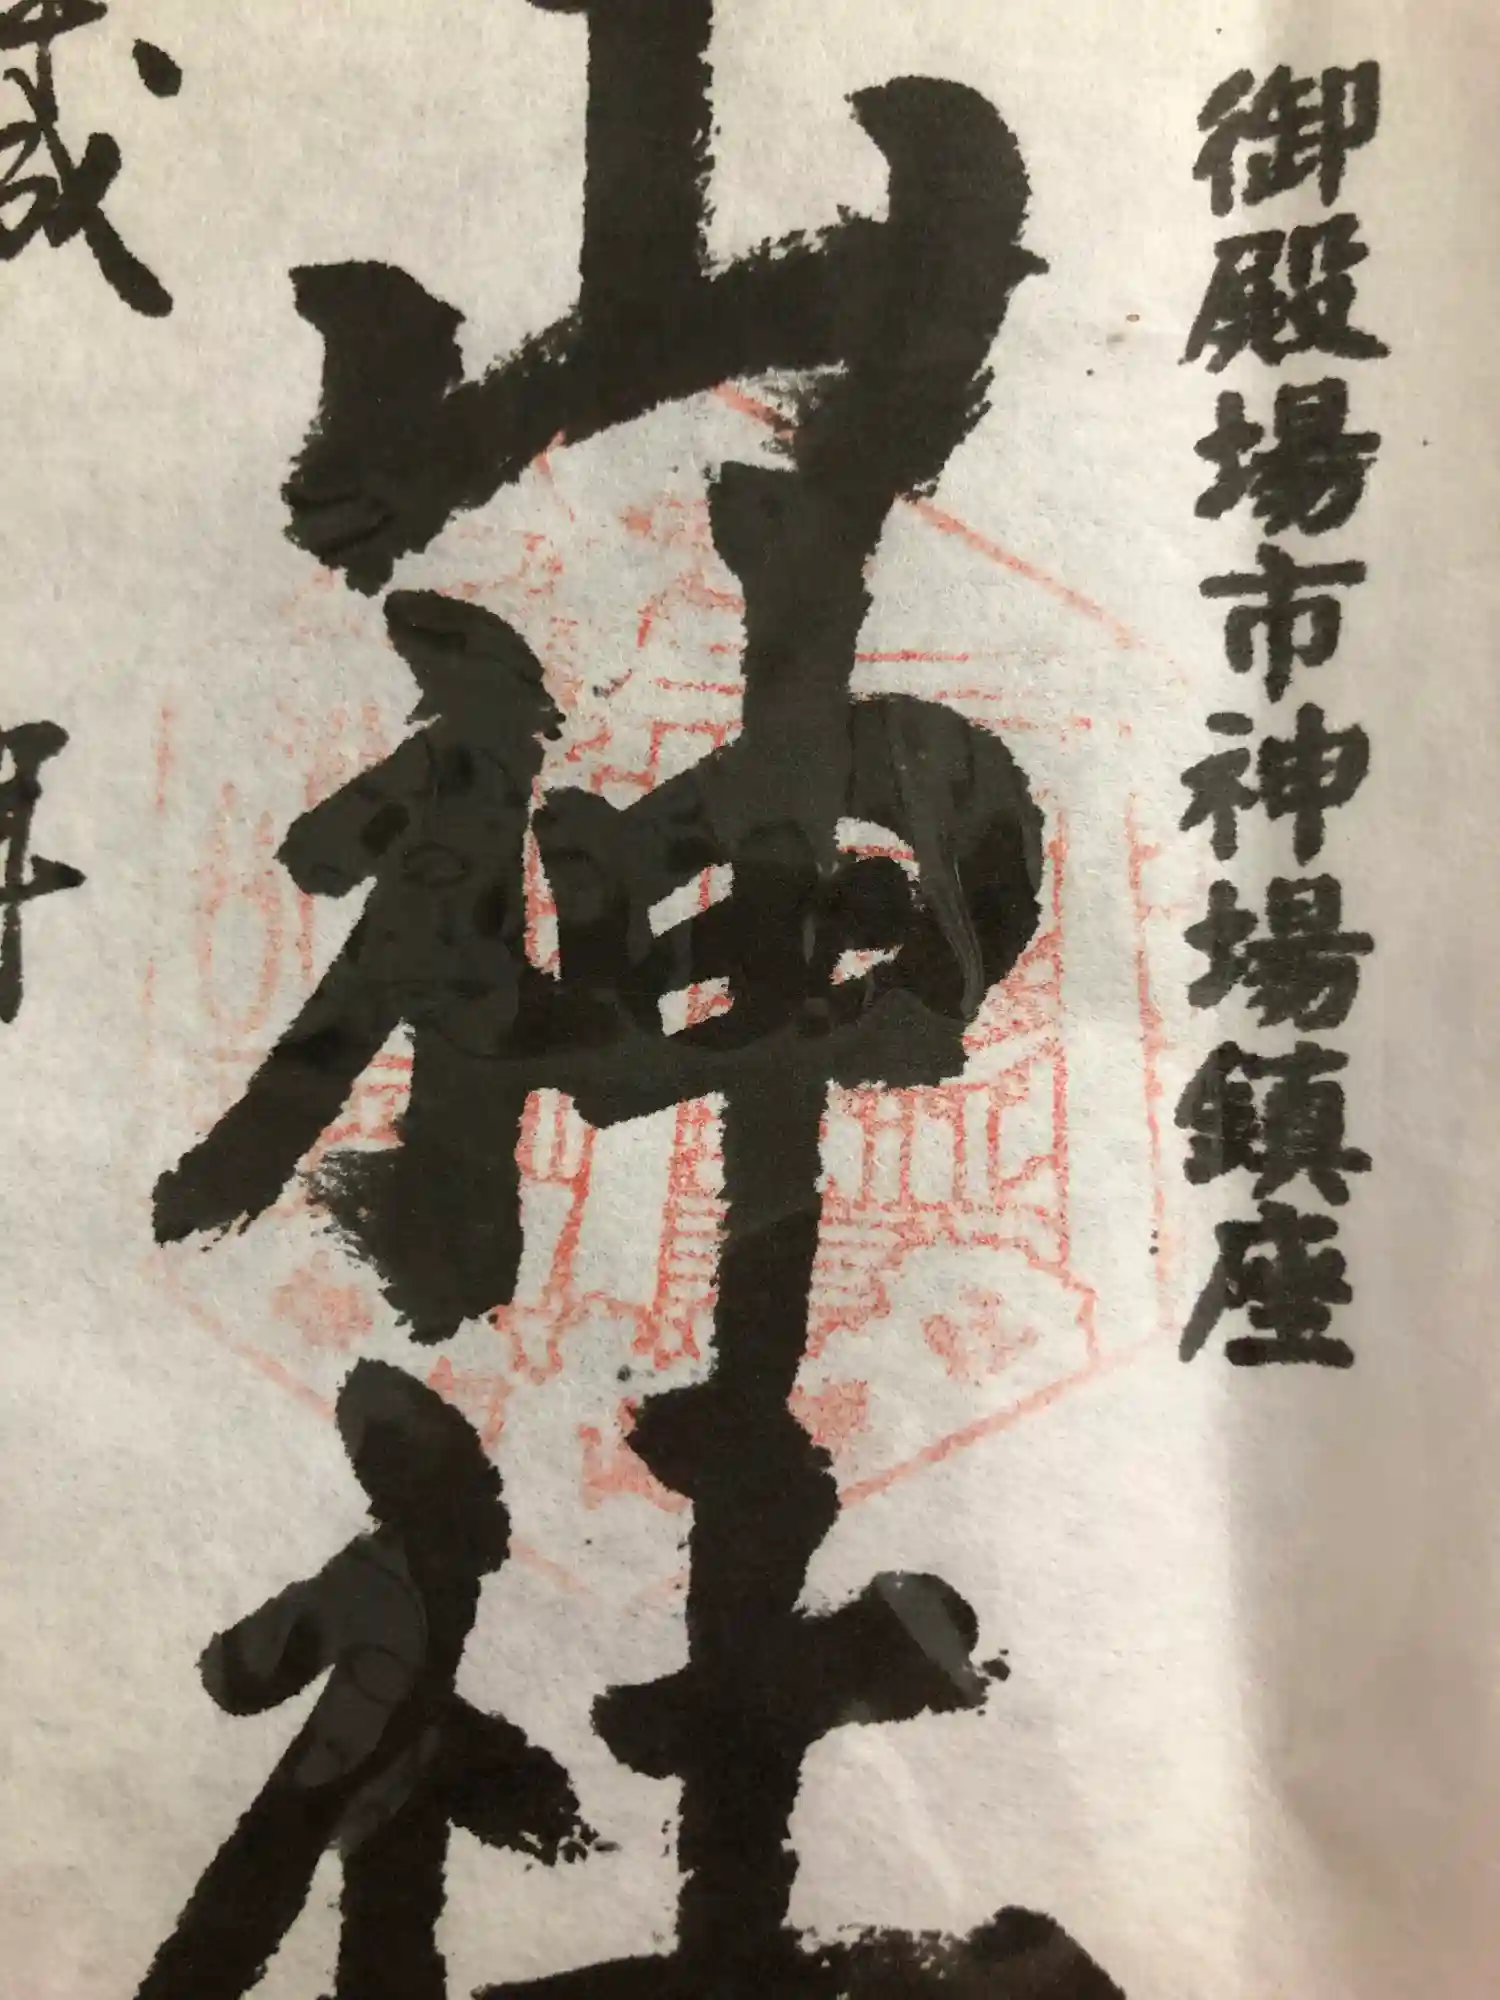 御殿場市神場鎮座
山神社